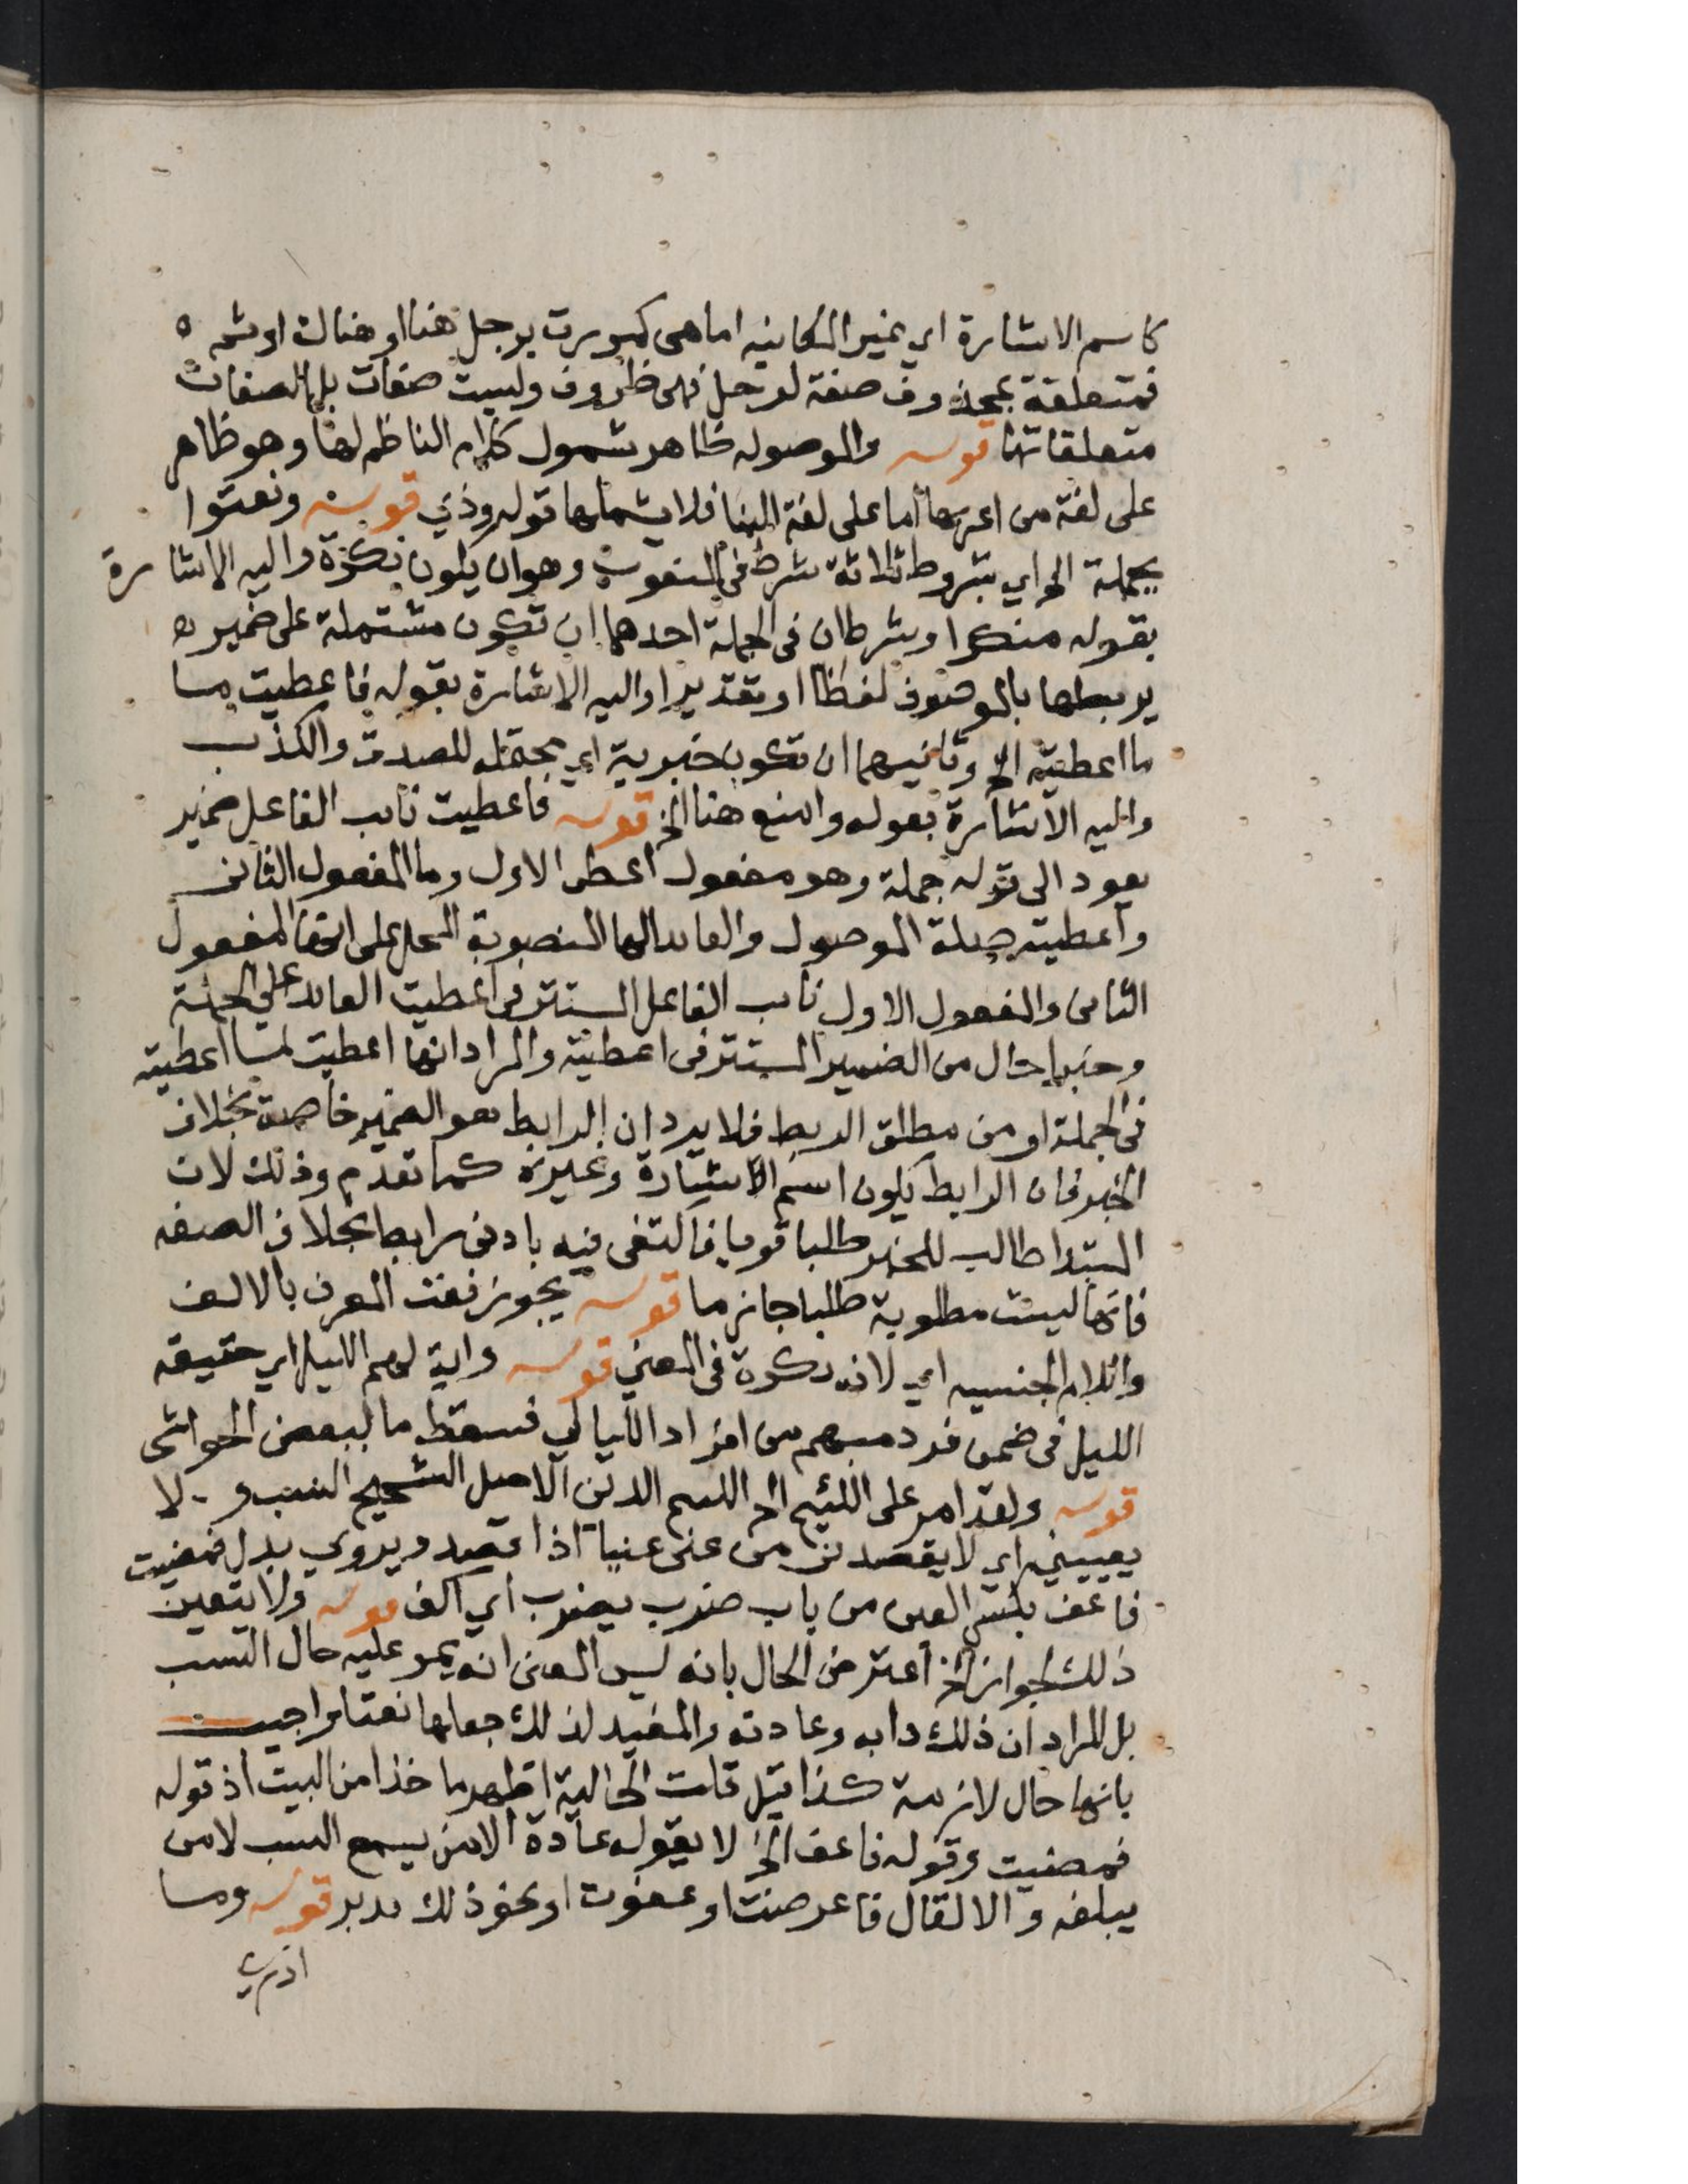 كاسم الاشارة اي غير المكانيه اما هي كمررت برجل هنا او هناك او ثمه
فمتعلقة بمحذوف صفة لرجل فهي ظروف وليست صفات بل الصفات
متعلقاتها قوله والموصوله ظاهر شمول كلام الناظم لها وهو ظاهر
على لغة من اعربها اما على لغة البنا فلا يشملها قوله وذي قوله ونعتوا
بجملة الخ اي بشروط ثلاثة شرط في المنعوت وهو ان يكون نكرة واليه الاشارة
بقوله منكرا وشرطان في الجملة احدهما ان تكون مشتملة على ضمير
يربطها بالموصوف لفظا او تقديرا واليه الاشارة بقوله فاعطيت ما
ما اعطيته الخ وثانيهما ان تكون خبرية اي محتمله للصدق والكذب
واليه الاشارة بقوله وامنع هنا الخ قوله فاعطيت نايب الفاعل ضمير
يعود الى قوله جملة وهو مفعول اعطى الاول وما المفعول الثاني
واعطيته صلة الموصول والعايد الها المنصوبة المحل على انها المفعول
الثاني والمفعول الاول نايب الفاعل المستتر في اعطيت العايد على الجملة
وخبرا حال من الضمير المستتر في اعطيته والمراد انها اعطيت لما اعطيته
في الجملة او من مطلق الربط فلا يرد ان الرابط هو الضمير خاصة بخلاف
الخبر فان الرابط يكون اسم الاشارة وغيره كما تقدم وذلك لان
المبتدا طالب للخبر طلبا قويا فاكتفى فيه بادنى رابط بخلاف الصفه
فانها ليست مطلوبة طلبا جازما قوله يجوز نعت المعرف بالالف
واللام الجنسيه اي لانه نكرة في المعنى قوله واية لهم الليل اي حقيقه
الليل في ضمن فرد مبهم من افراد الليالي فسقط ما لبعض الحواشي
قوله ولقد امر على اللئيم الخ اللئيم الدني الاصل الشحيح النسب و لا
يعنيني اي لا يقصدني من عنى عنيا اذا قصد ويروي بدل فمضيت
فاعف بكسر العين من باب ضرب يضرب اي اكف قوله ولا يتعين
ذلك لجواز الخ اعترض الحال بانه ليس المعنى انه يمر عليه حال السب
بل المراد ان ذلك دابه وعادته والمفيد لذلك جعلها نعتا واجيب
بانها حال لازمة كذا قيل قلت الحالية اظهر ماخذا من البيت اذ قوله
فمضيت وقوله فاعف الخ لا يقوله عادة الا من يسمع السب لا من
يبلغه والا لقال فاعرضت او عفوت او نحو ذلك تدبر قوله وما
ادري